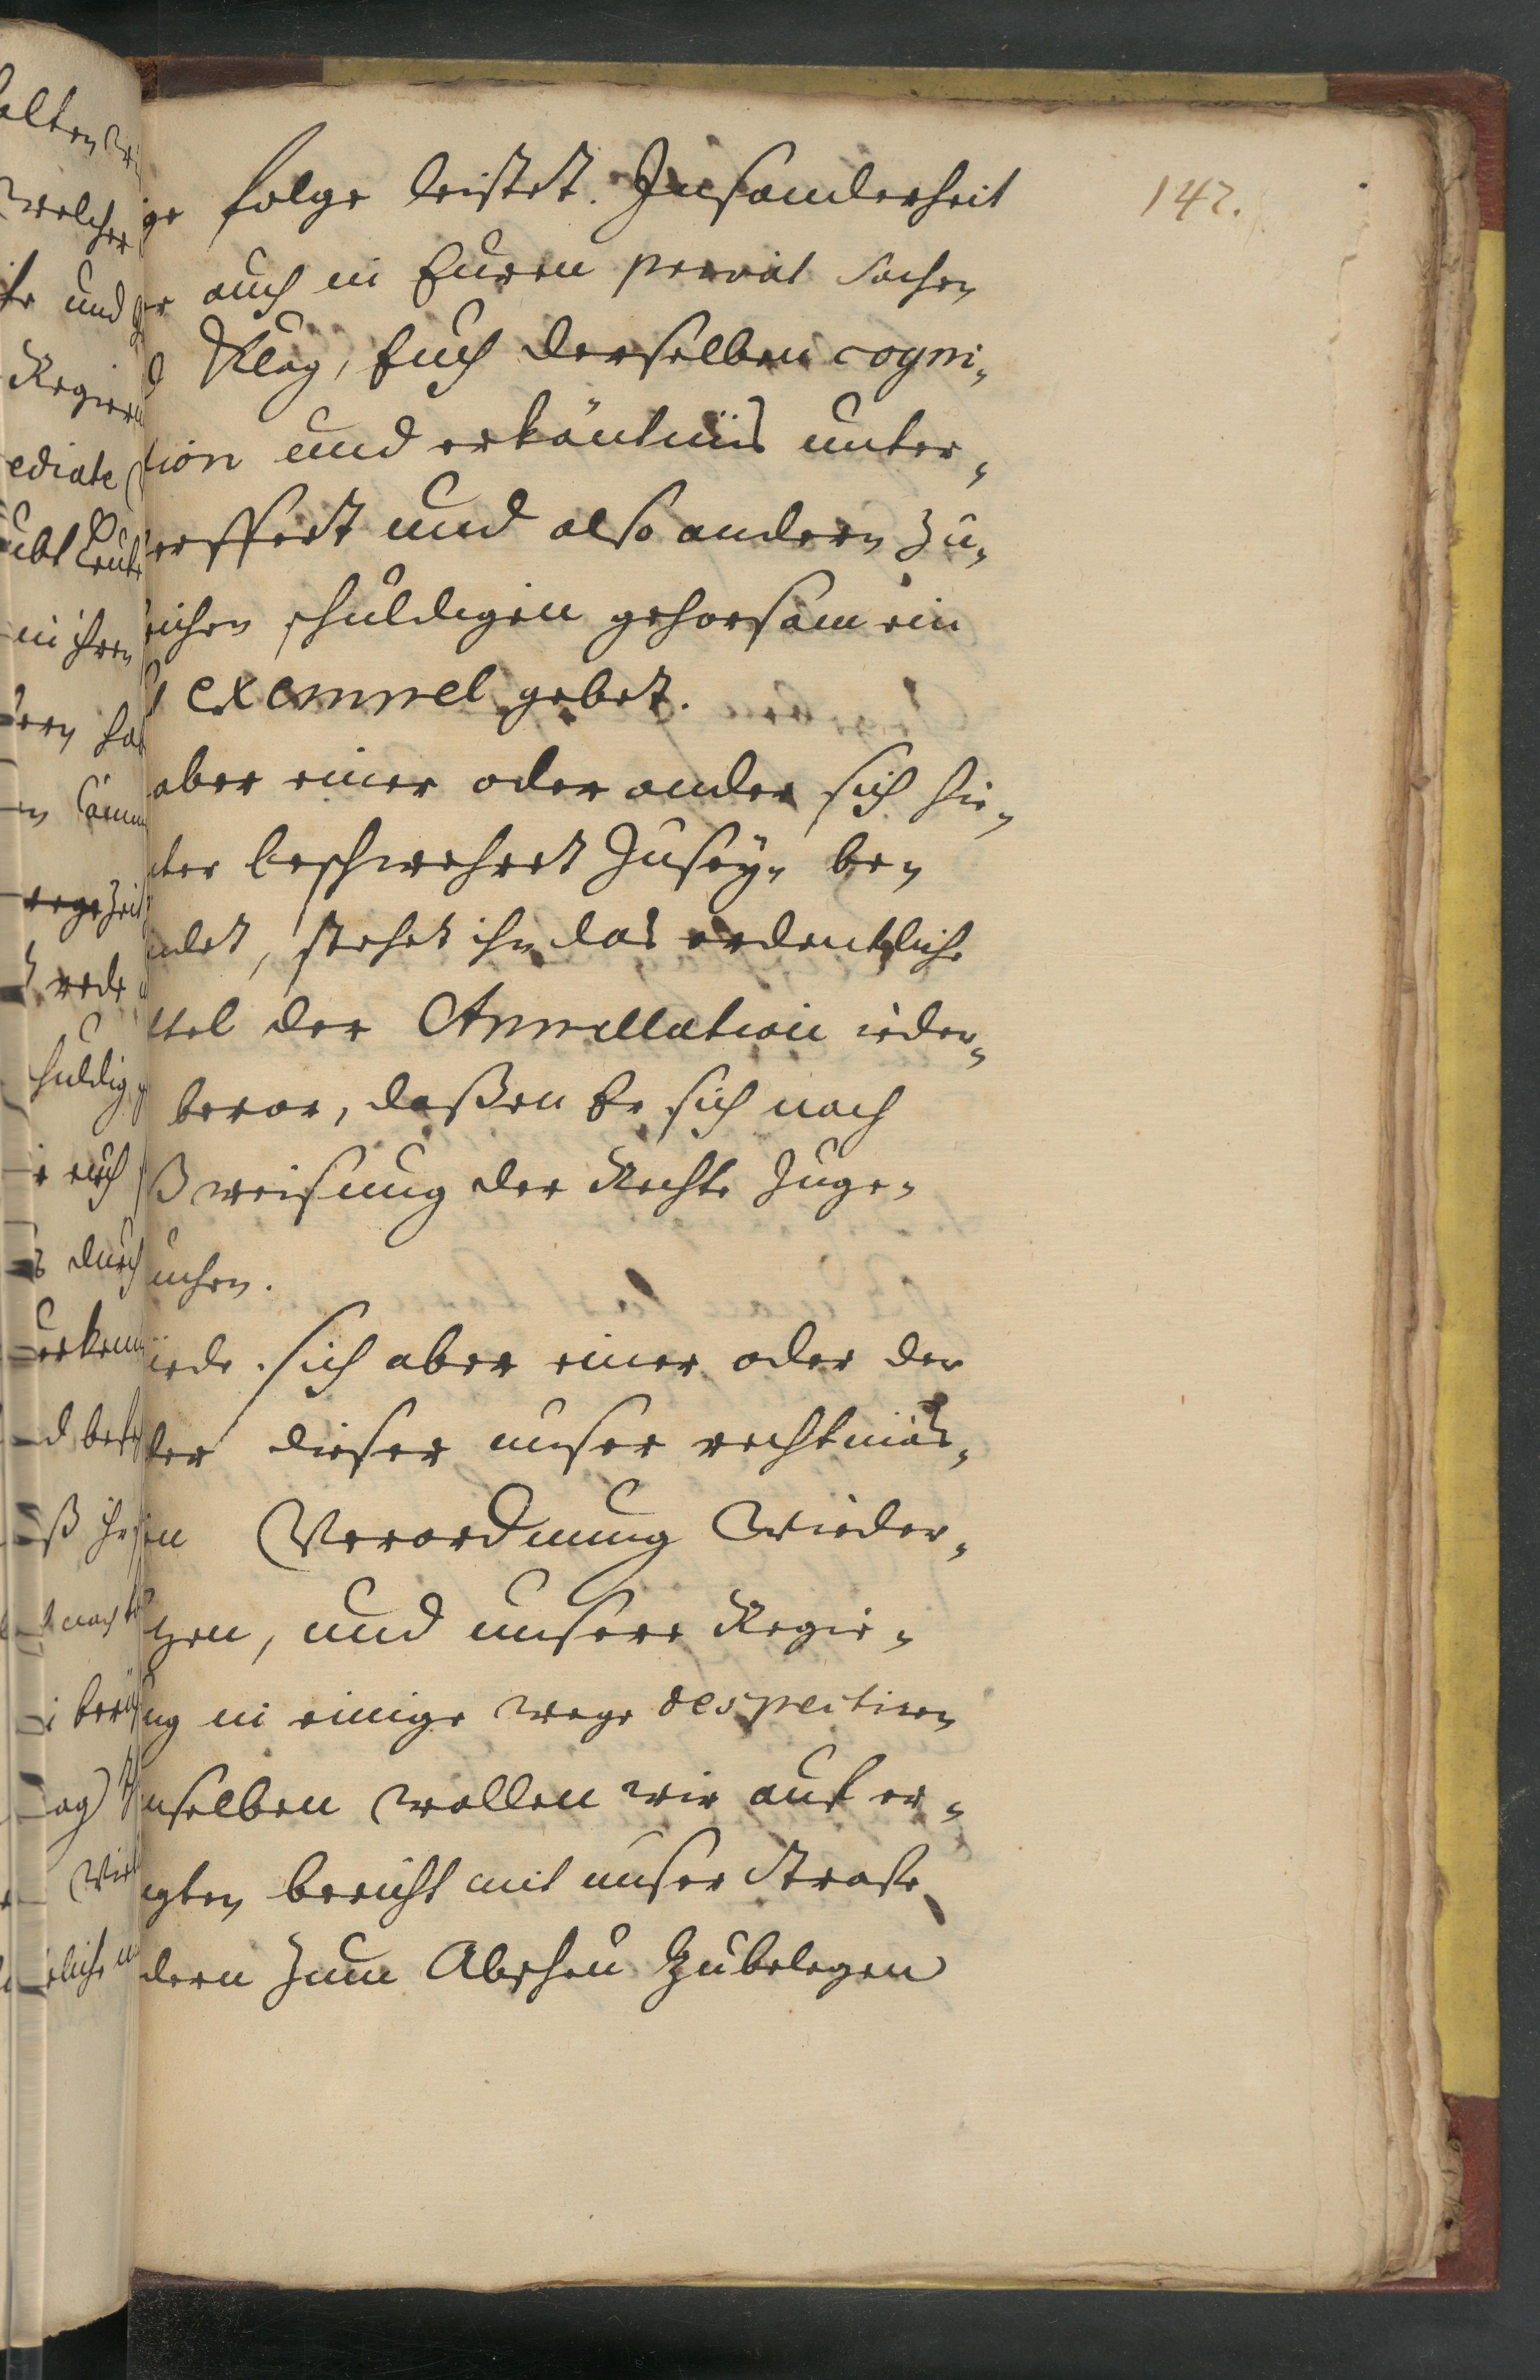 142.
ge folge leistet. Insonderheit
er auch in Euren privat sachen
d Klag, Euch derselben cogni„
tion und erkäntnüs unter„
erffet und also andern zu„
eichen schuldigen gehorsam ein
exempel gebet.
aber einer oder ander sich hie„
nter beschwehret zuseyn be„
ndet, stehet ihm das ordentliche
ttel der Appellation ieder„
bevor, deßen Er sich nach
ßweisung der Rechte zuge„
uchen.
ürde sich aber einer oder der
der dieser unser rechtmäs„
en Verordnung wieder„
tzen, und unsere Regie„
ung in einige wege despectiren
enselben wollen wir auf er„
gten bericht mit unser Straffe
dern zum Abscheu zubelegen